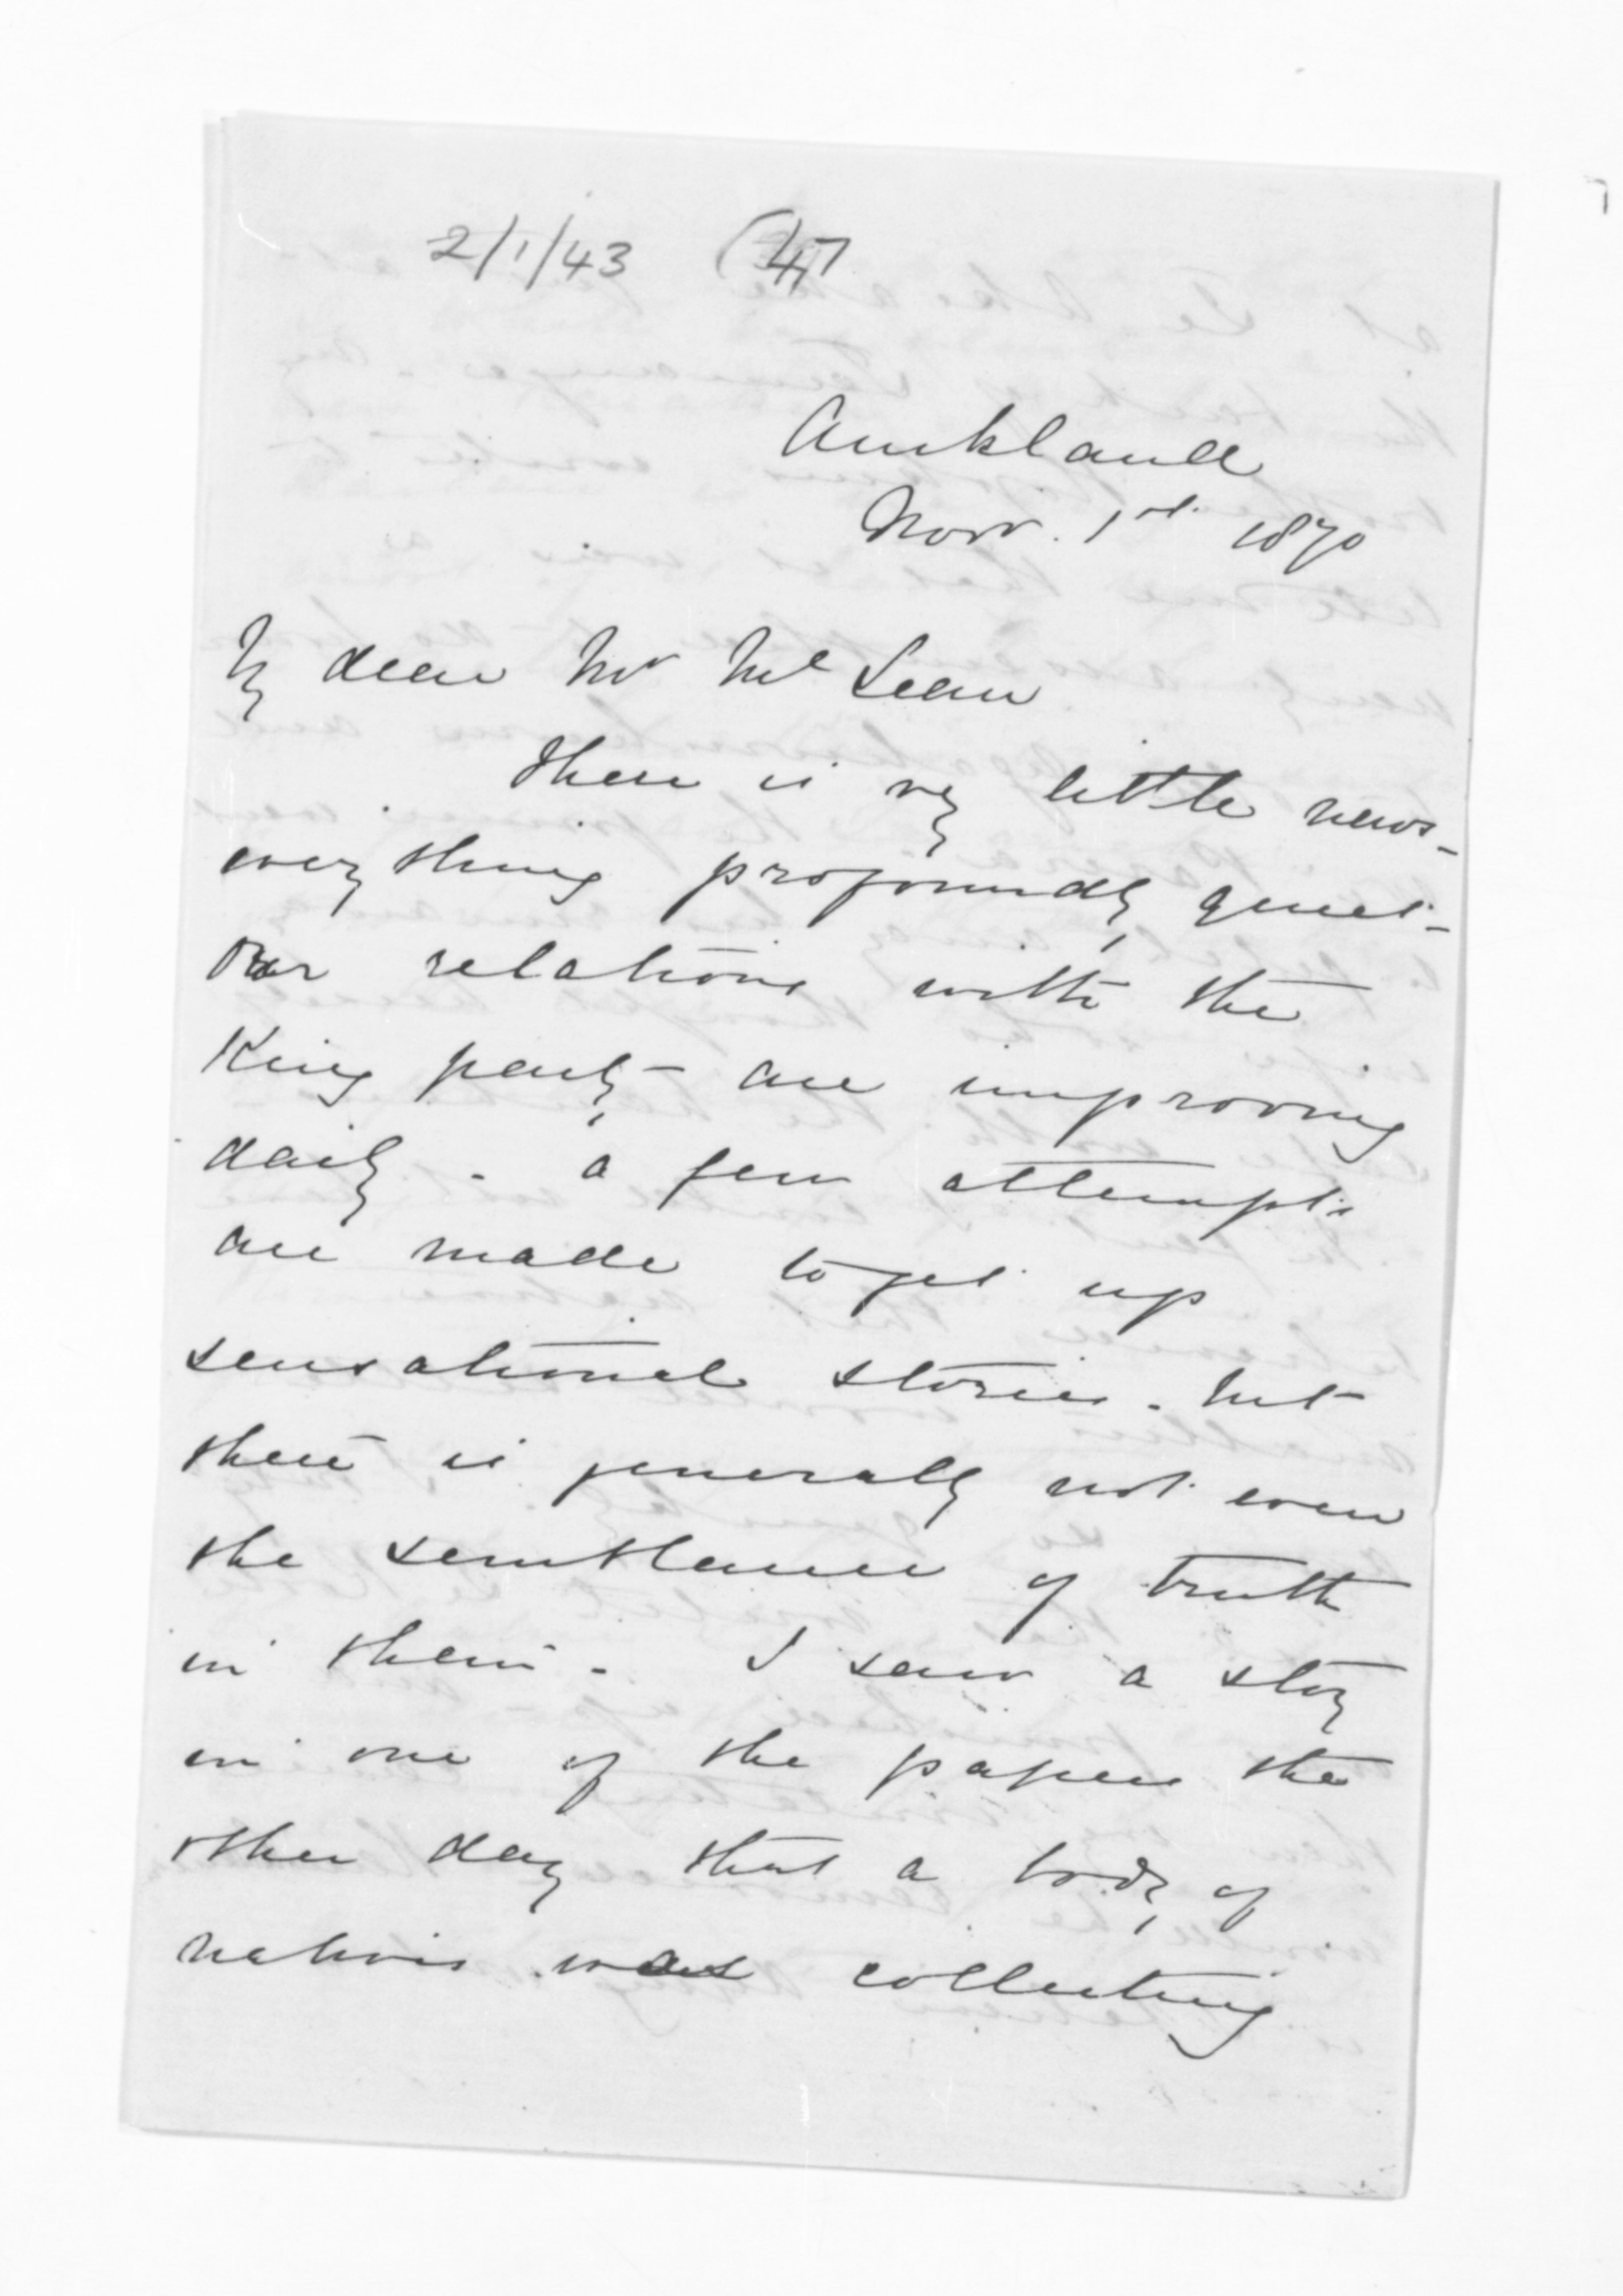 2/1/43 (47
Auckland
Nov. 1st 1870
My dear Mr McLean
There is very little news -
everything profoundly quiet -
Our relations with the
King party are improving
daily - a few attempts
are made to get up
sensational stories - but
there is generally not even
the semblance of truth
in them - I saw a story
in one of the papers the
other day that a body of
natives was collecting